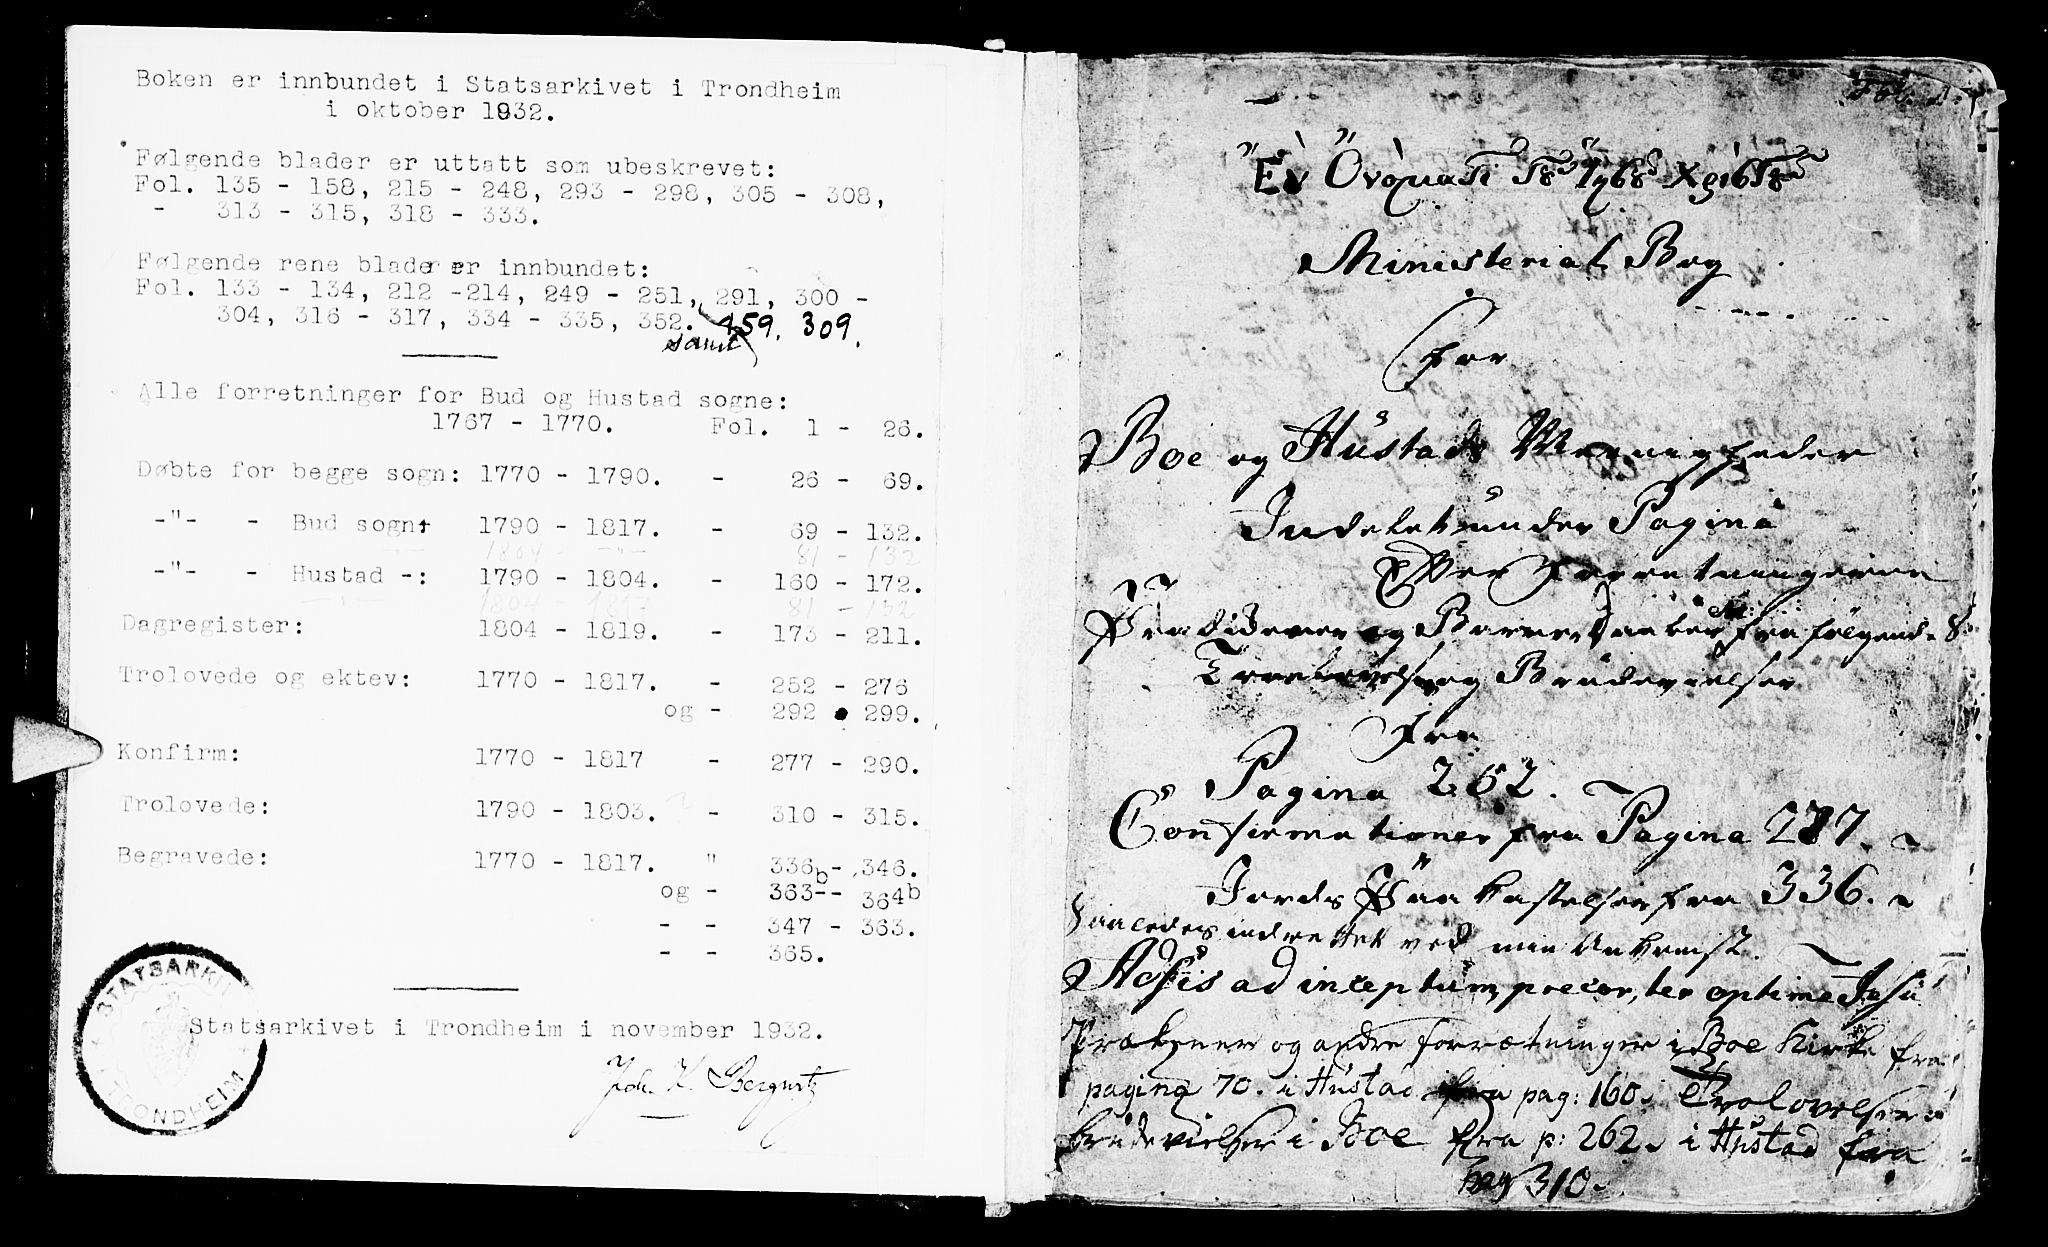 Boken er innbundet i Statsarkivet i Trondheim
i oktober 1932.
Følgende blader er uttatt som ubeskrevet:
Fol. 135 - 158, 215 - 248, 293 - 298, 305 - 308,
- 313 - 315, 318 - 333.
Følgende rene blader er innbundet:
Fol. 133 - 134, 212 -214, 249 - 251, 291, 300 -
304, 316 - 317, 334 - 335, 352. 159. 309.
samt
Alle forretninger for Bud og Hustad sogne:
1767 - 1770. Fol. 1 - 26.
Døbte for begge sogn: 1770 - 1790. - 26 - 69.
-"- - Bud sogn: 1790 - 1817. - 69 - 132.
1804 - -"- 81 - 132
-"- - Hustad -: 1790 - 1804. - 160 - 172.
1804 - 1817 81 - 132
Dagregister: 1804 - 1819. - 173 - 211.
Trolovede og ektev: 1770 - 1817. - 252 - 276
og - 292 - 299.
Konfirm: 1770 - 1817 - 277 - 290.
Trolovede: 1790 - 1803. - 310 - 315.
Begravede: 1770 - 1817. " 336b - 346.
og - 363 -- 364b
- - 347 - 363.
- - 365.
STATSARKIVET I TRONDHEIM
Statsarkivet i Trondheim i november 1932.
Fol. 1.
Ministerial Bog
for
Boe og Hustads Menigheder
Indelet under Pagina
Efter Forretningerne
Prædikener og Barne Daaber fra følgende
Troelovelse og Brudevielser
fra
Pagina 262.
Confirmationer fra Pagina 277.
Jords Paa kastelser fra 336.
Saaledes indrettet ved min Ankomst.
Adsis ad inceptum, precor, ter optime Jesu
Prækener og andre forrætninger i Boe Kirke fra
pagina 70. i Hustad fra pag: 160. Trolovelser o
brudevielser i Boe fra p: 262. i Hustad fra
pag 310.